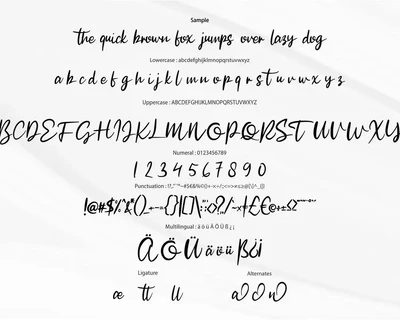 Sample
the quick brown fox jumps over lazy dog
Lowercase : abcdefghijklmnopqrstuvwxyz
a b c d e f g h i j k l m n o p q r s t u v w x y z
Uppercase : ABCDEFGHIJKLMNOPQRSTUVWXYZ
BCDEFGHIJKLMNOPQRSTUVWXY
Numeral : 0123456789
1 2 3 4 5 6 7 8 9 0
Punctuation :
!@#$%
Multilingual : ä ö ü Ä Ö Ü ß ¿ ¡
Ä Ö Ü ä ö ü ß ¿ ¡
Ligature Alternates
æ tt ll a o w